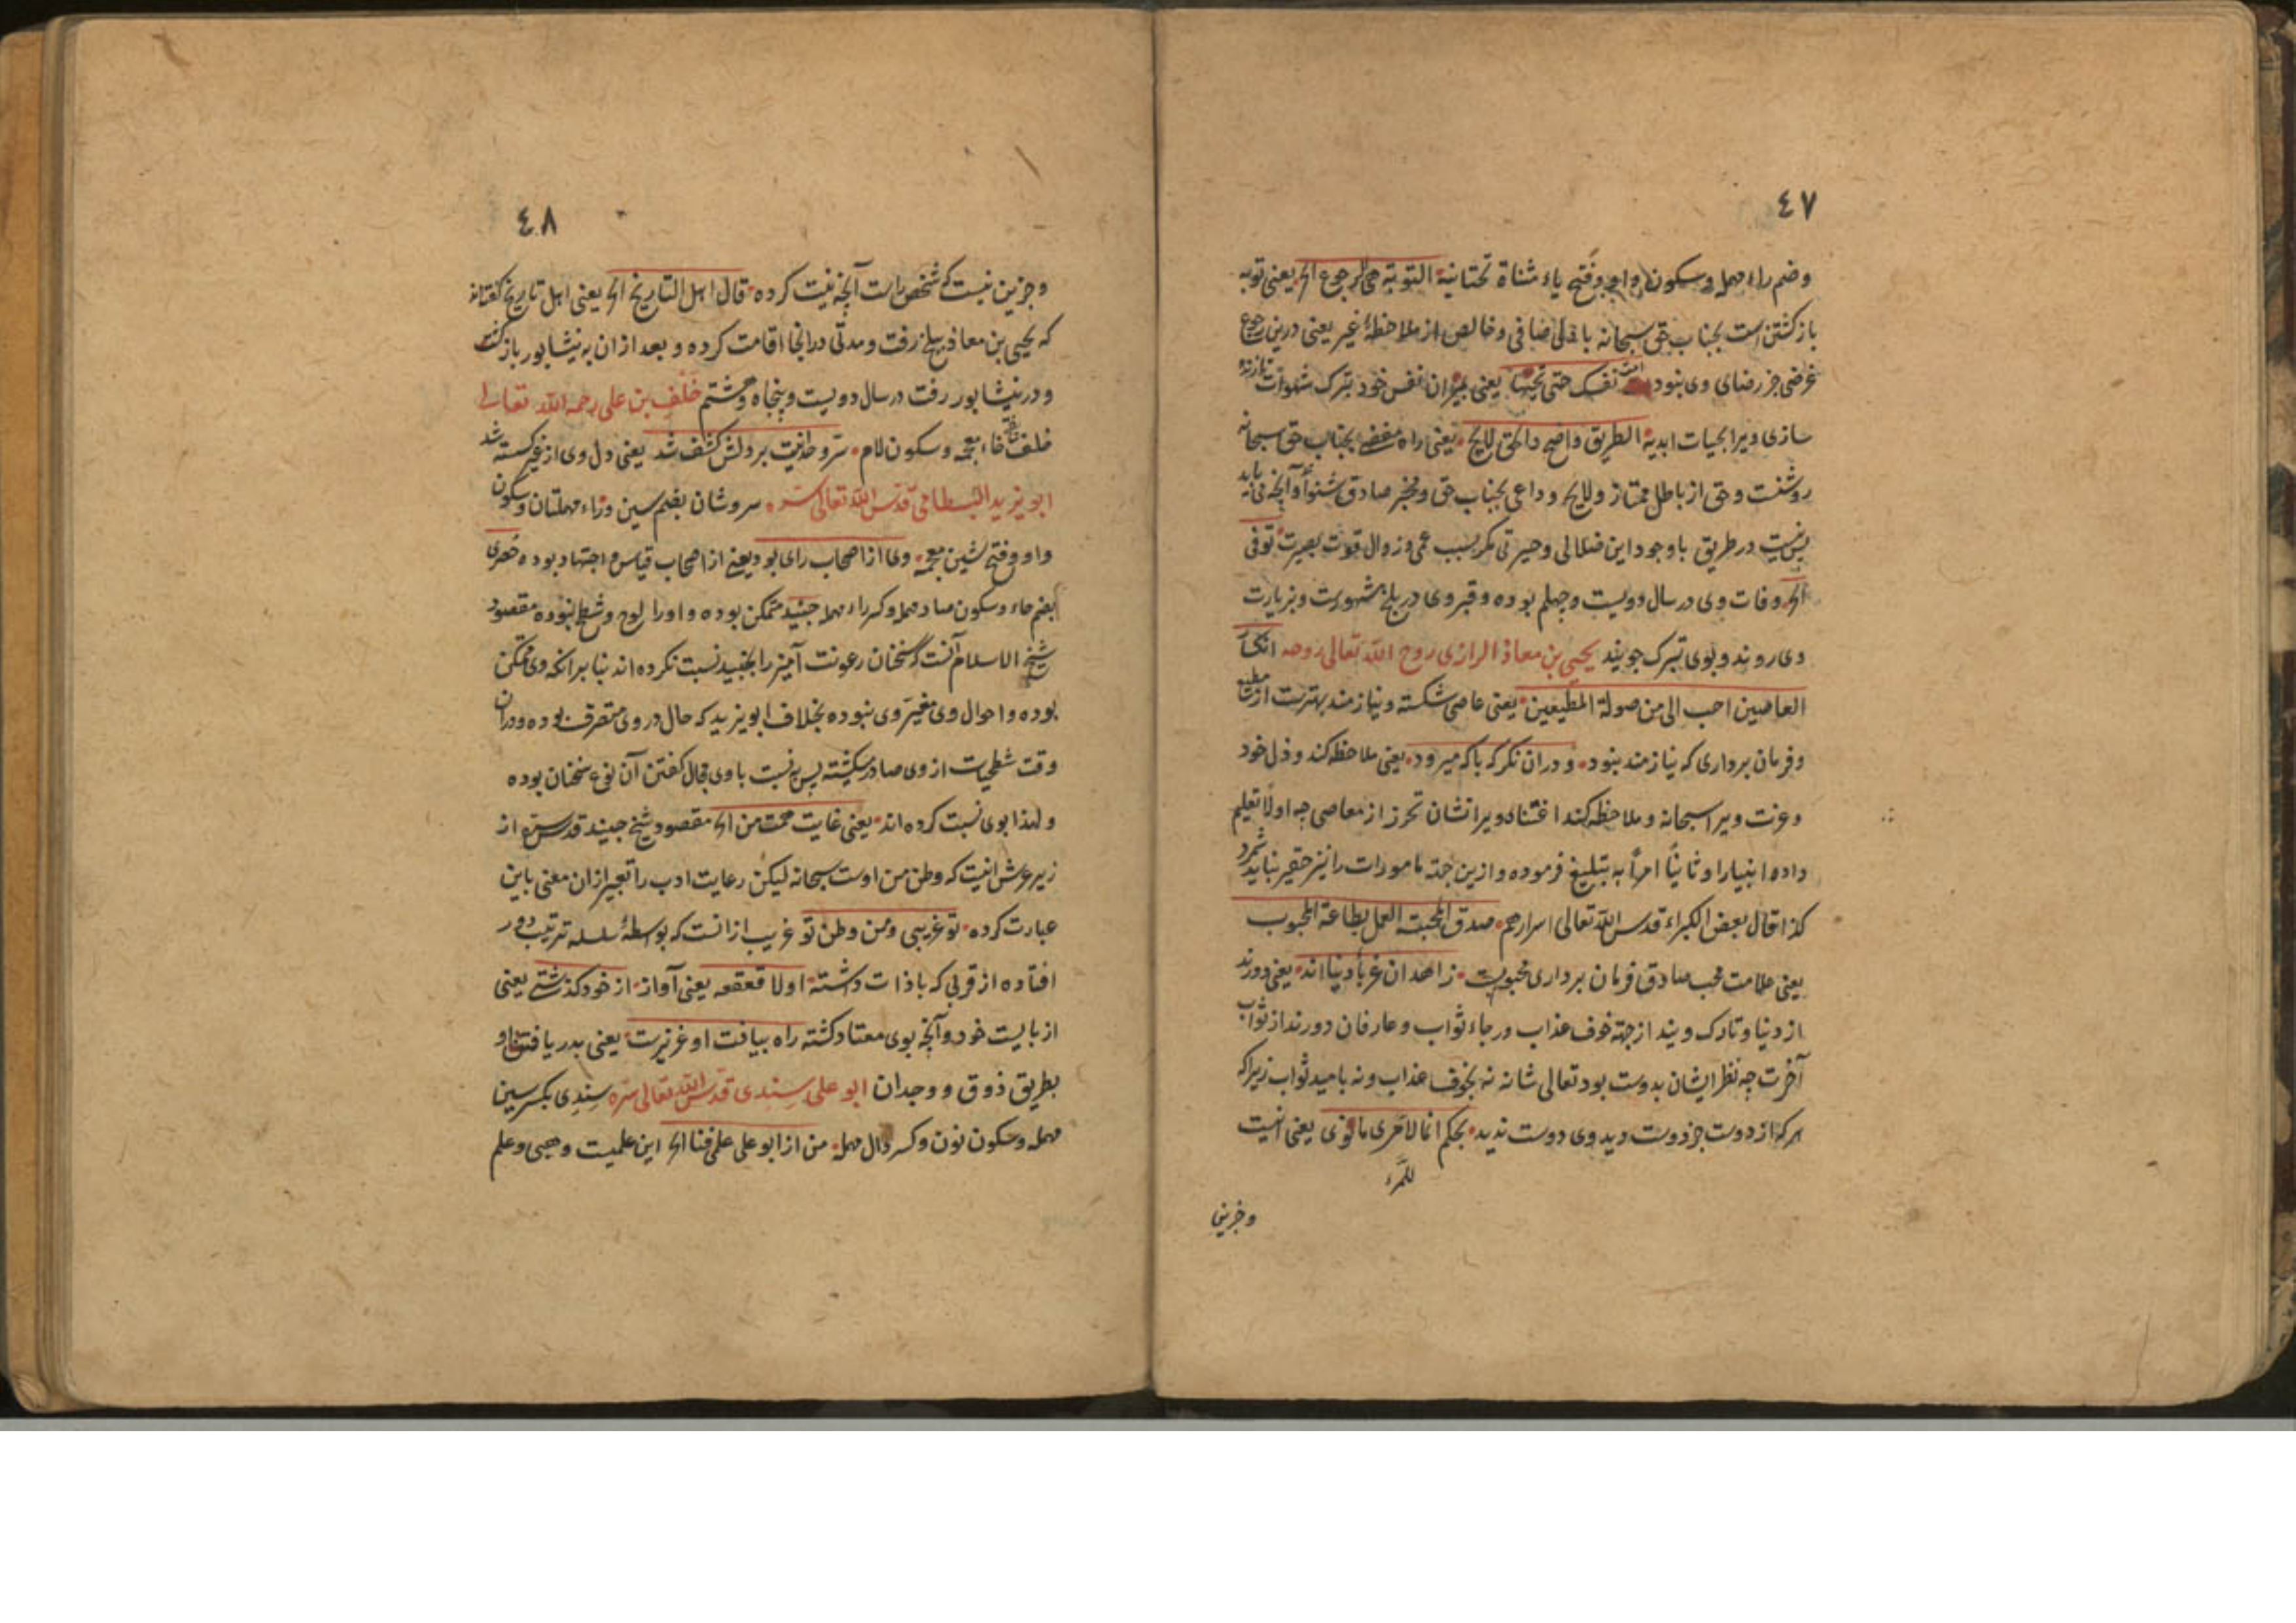 ٤٧
وضم راء مهمله وسكون واو وفتح ياء مثناة تحتانية التوبة هى الرجوع الخ يعنى توبه
بازكشتن است بجناب حق سبحانه با دلى صافى وخالص از ملاحظهٔ غير يعنى درين رجوع
غرضى جز رضاى وى نبود امت نفسك حتى تحييها يعنى بميران نفس خود بترك شهوات تا زنده
سازى ويرا بحيات ابديه الطريق واضح والحق لايح يعنى راه مفضى بجناب حق سبحانه
روشنست وحق از باطل ممتاز ولايح وداعى بجناب حق ومخبر صادق شنوا وآنچه مى بايد
پس نيست در طريق باوجود اين ضلالى وحيرتى مكر بسبب عمى وزوال قوت بصيرت توفى
الخ وفات وى در سال دويست وچهلم بوده وقبر وى در بلخ مشهورست وبزيارت
وى روند وبوى تبرك جويند يحيى بن معاذ الرازى روح الله تعالى روحه انكسار
العاصين احب الى من صولة المطيعين يعنى عاصى شكسته ونيازمند بهترست از مطيع
وفرمان بردارى كه نيازمند نبود ودران نكر كه با كه ميرود يعنى ملاحظه كند وذل خود
وعزت ويرا سبحانه وملاحظه كند اعتناى ويرا نشان تحرز از معاصى چه اولا تعليم
داده انبيا را وثانيا امر به تبليغ فرموده وازين جهة مامورات را نيز حقير نبايد شمرد
كذا قال بعض الكبراء قدس الله تعالى اسرارهم صدق المحبة العمل بطاعة المحبوب
يعنى علامت محب صادق فرمان بردارى محبوبست زاهدان غرباء دنيا اند يعنى دورند
از دنيا وتارك ويند از جهة خوف عذاب ورجاء ثواب وعارفان دورند از ثواب
آخرت چه نظر ايشان بدوست بود تعالى شانه نه بخوف عذاب ونه باميد ثواب زيرا كه
هر كه از دوست جز دوست ديد وى دوست نديد بحكم انما لامرى ما نوى يعنى انيست
للمرء
وجزين
٤٨
وجزين نيست كه شخص راست آنچه نيت كرده قال اهل التاريخ الخ يعنى اهل تاريخ كفته اند
كه يحيى بن معاذ ببلخ رفت ومدتى در انجا اقامت كرده وبعد ازان به نيشابور بازكشت
ودر نيشابور رفت در سال دويست وپنجاه وهشتم خلف بن على رحمه الله تعالى
خلف بفتح خاء معجمه وسكون لام سر وحدانيت بر دلش كشف شد يعنى دل وى از غير كسسته شد
ابو يزيد البسطامى قدس الله تعالى سره سروشان بضم سين وراء مهملتان وسكون
واو وفتح شين معجمه وى از اصحاب راى بود يعنى از اصحاب قياس واجتهاد بوده حصرى
بضم حاء وسكون صاد مهمله وكسر راء مهمله جنيد متمكن بوده واورا لوح وشطح نبوده مقصود
شيخ الاسلام آنست كه سخنان رعونت آميز را بجنيد نسبت نكرده اند بنا بر انكه وى متمكن
بوده واحوال وى مغير وى نبوده بخلاف ابو يزيد كه حال در وى متصرف بوده ودران
وقت شطحيات از وى صادر ميكشته پس به نسبت با وى مجال كفتن آن نوع سخنان بوده
ولهذا بوى نسبت كرده اند يعنى غايت همت من الخ مقصود شيخ جنيد قدس سره از
زير عرش انيست كه وطن من اوست سبحانه ليكن رعايت ادب را تعبير ازان معنى باين
عبارت كرده تو غريبى ومن وطن تو غريب از انست كه بواسطهٔ سلسله ترتيب دور
افتاده از قربى كه با ذات داشته اولا قعقعه يعنى آواز از خود كذشتى يعنى
از بايست خود وآنچه بوى معتاد كشته راه بيافت او عزيزست يعنى بدر يافتن او
بطريق ذوق ووجدان ابو على سندى قدس الله تعالى سره سندى بكسر سين
مهمله وسكون نون وكسر دال مهمله من از ابو على علم فنا الخ اين علميست وهبى وعلم